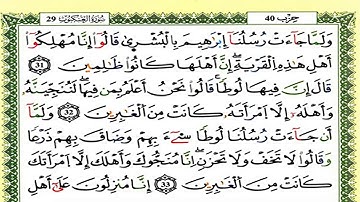 حزب 40 سورة العنكبوت 29
وَلَمَّا جَآءَتْ رُسُلُنَآ إِبْرَٰهِيمَ بِالْبُشْرَىٰ قَالُوٓا۟ إِنَّا مُهْلِكُوٓا۟
أَهْلِ هَٰذِهِ الْقَرْيَةِ إِنَّ أَهْلَهَا كَانُوا۟ ظَٰلِمِينَ 31
قَالَ إِنَّ فِيهَا لُوطًا قَالُوا۟ نَحْنُ أَعْلَمُ بِمَن فِيهَا لَنُنَجِّيَنَّهُۥ
وَأَهْلَهُۥٓ إِلَّا امْرَأَتَهُۥ كَانَتْ مِنَ الْغَٰبِرِينَ 32 وَلَمَّآ
أَن جَآءَتْ رُسُلُنَا لُوطًا سِىٓءَ بِهِمْ وَضَاقَ بِهِمْ ذَرْعًا
وَقَالُوا۟ لَا تَخَفْ وَلَا تَحْزَنْ إِنَّا مُنَجُّوكَ وَأَهْلَكَ إِلَّا امْرَأَتَكَ
كَانَتْ مِنَ الْغَٰبِرِينَ 33 إِنَّا مُنزِلُونَ عَلَىٰٓ أَهْلِ